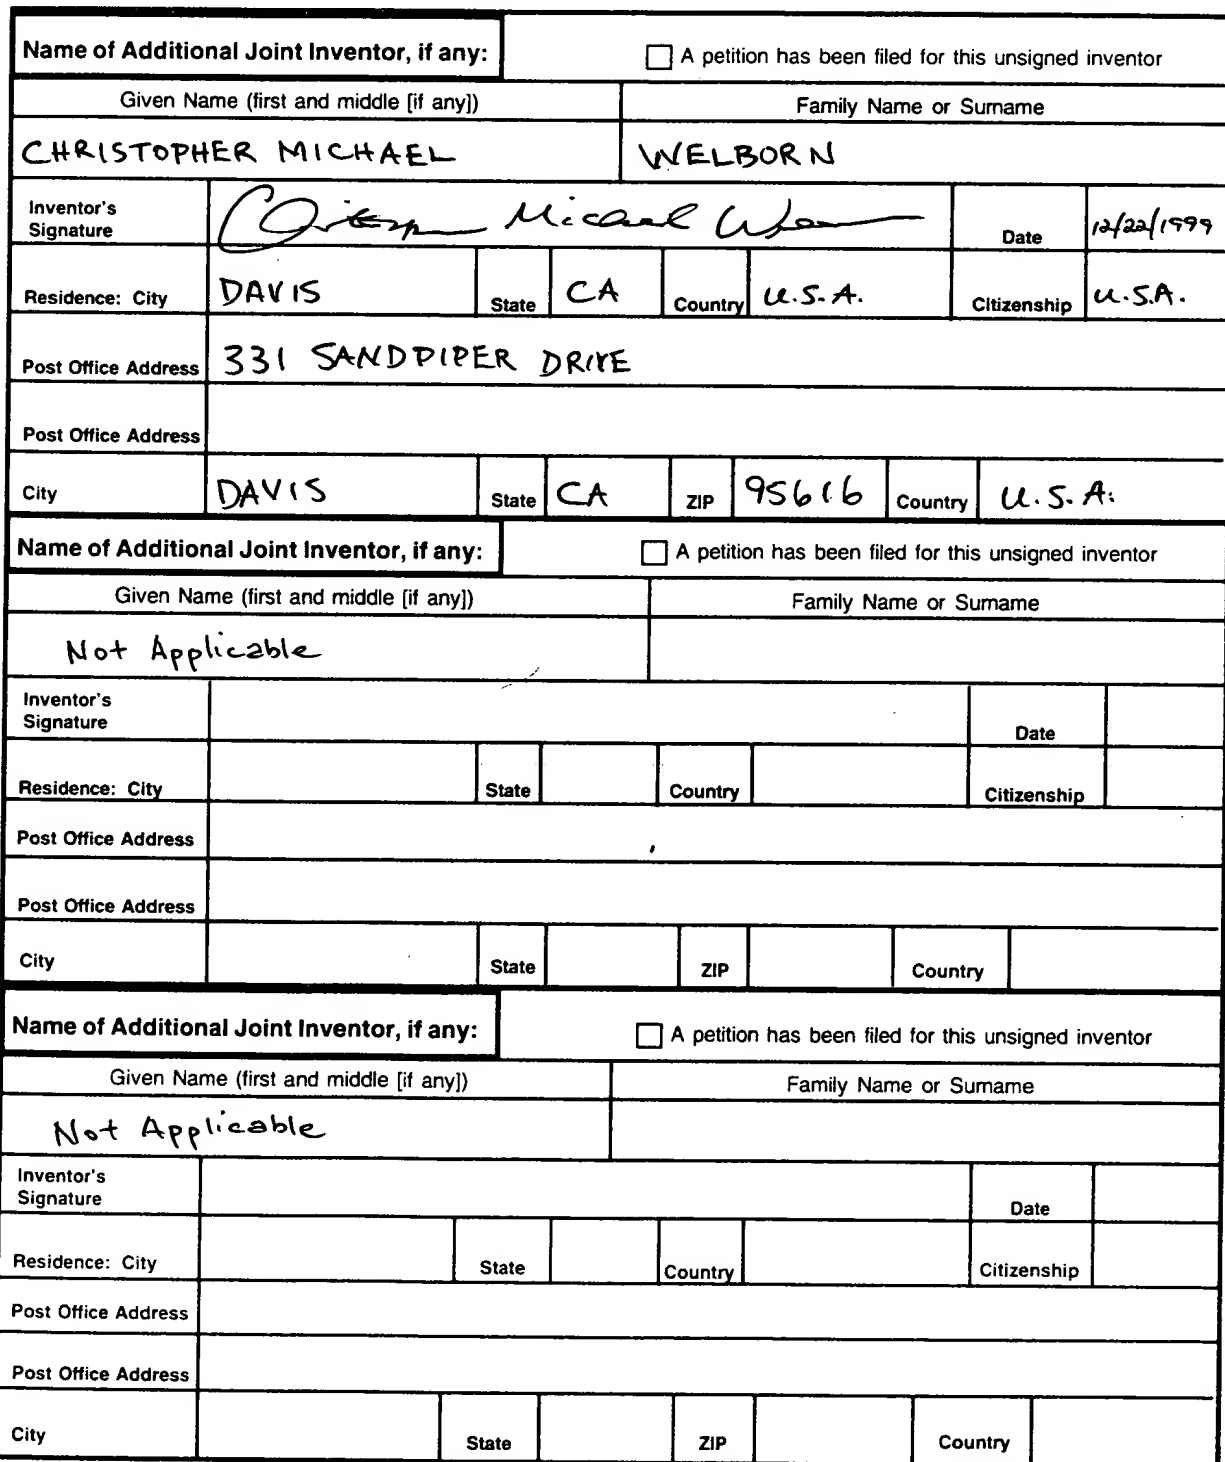 Name of Additional Joint Inventor, if any: ☐ A petition has been filed for this unsigned inventor
Given Name (first and middle [if any]) Family Name or Surname
CHRISTOPHER MICHAEL WELBORN
Inventor's Signature Michael Date 12/22/1999
Residence: City DAVIS State CA Country U.S.A. Citizenship U.S.A.
Post Office Address 331 SANDPIPER DRIVE
Post Office Address
City DAVIS State CA ZIP 95616 Country U.S.A.
Name of Additional Joint Inventor, if any: ☐ A petition has been filed for this unsigned inventor
Given Name (first and middle [if any]) Family Name or Surname
Not Applicable
Inventor's Signature Date
Residence: City State Country Citizenship
Post Office Address
Post Office Address
City State ZIP Country
Name of Additional Joint Inventor, if any: ☐ A petition has been filed for this unsigned inventor
Given Name (first and middle [if any]) Family Name or Surname
Not Applicable
Inventor's Signature Date
Residence: City State Country Citizenship
Post Office Address
Post Office Address
City State ZIP Country